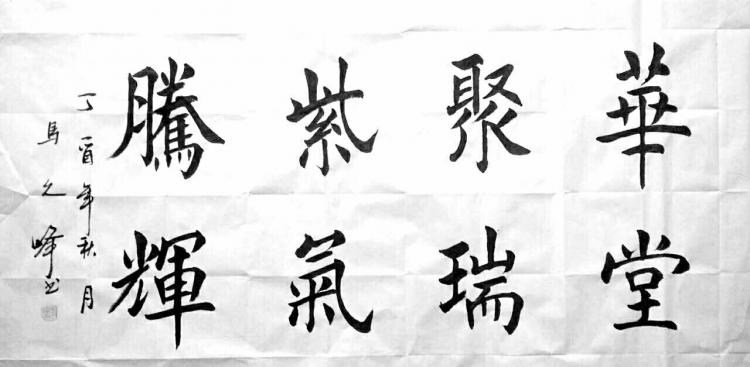 華堂
聚瑞
紫氣
騰輝
丁酉年秋月
馬之峰书